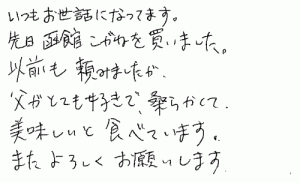 いつもお世話になってます。
先日函館こがねを買いました。
以前も頼みましたが、
父がとても好きで、柔らかくて、
美味しいと食べています。
またよろしくお願いします。